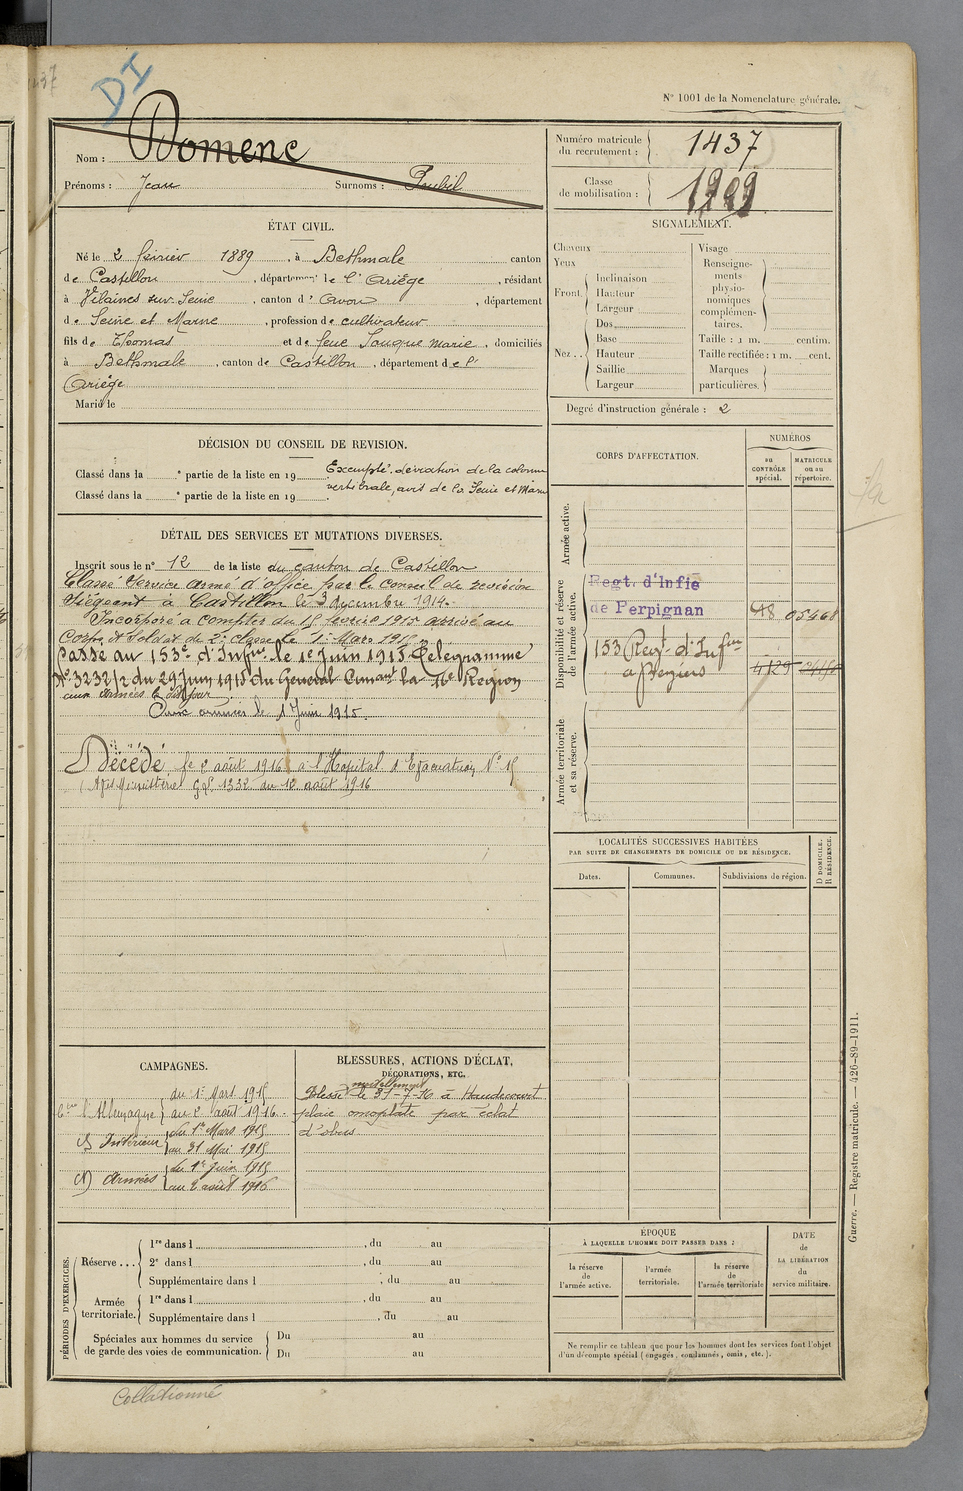 DI
N° 1001 de la Nomenclature générale.
Nom : Domenc
Prénoms : Jean Surnoms : Poubil
Numéro matricule du recrutement : 1437
Classe de mobilisation : 1909
ÉTAT CIVIL.
Né le 2 février 1889, à Bethmale canton
de Castillon, département de l'Ariège, résidant
à Vilaines sur Seine, canton d'Avon, département
de Seine et Marne, profession de cultivateur
fils de Thomas et de feue Souque Marie, domiciliés
à Bethmale, canton de Castillon, département de l'
Ariège
Marié le
SIGNALEMENT.
Cheveux
Yeux
Front
Inclinaison
Hauteur
Largeur
Nez ..
Dos
Base
Hauteur
Saillie
Largeur
Visage
Renseigne-
ments
physio-
nomiques
complémen-
taires.
Taille : 1 m. centim.
Taille rectifiée : 1 m. cent.
Marques
particulières.
Degré d'instruction générale : 2
DÉCISION DU CONSEIL DE REVISION.
Classé dans la e partie de la liste en 19 Exempté. déviation de la colonne
Classé dans la e partie de la liste en 19 vertébrale, avis de la Seine et Marne
DÉTAIL DES SERVICES ET MUTATIONS DIVERSES.
Inscrit sous le n° 12 de la liste du canton de Castillon
Classé Service armé d'office par le conseil de revision
siégeant à Castillon le 3 decembre 1914.
Incorporé à compter du 15 fevrie 1915 arrivé au
Corps et Soldat de 2e classe le 1er Mars 1915
Passé au 153e d'Infie le 1e Juin 1915 Télégramme
N° 3232/2 du 29 Juin 1915 du Général Comant la 16e Region
aux armées le dit jour
Aux armées le 1 Juin 1915.
Décédé le 2 août 1916 à l'Hopital d'Evacuation N° 15
(Avis Ministériel 1332 du 10 août 1916
CORPS D'AFFECTATION.
NUMÉROS
au CONTRÔLE spécial.
MATRICULE ou au répertoire.
Armée active.
Disponibilité et réserve de l'armée active.
Regt. d'Infie
de Perpignan 48 05468
153 Regt d'Infie
à Béziers 4129
Armée territoriale et sa réserve.
LOCALITÉS SUCCESSIVES HABITÉES
PAR SUITE DE CHANGEMENTS DE DOMICILE OU DE RÉSIDENCE.
Dates.
Communes.
Subdivisions de région.
D DOMICILE. R RÉSIDENCE.
CAMPAGNES.
Cre l'Allemagne
du 1er Mars 1915
au 2 août 1916.
Intérieur
du 1er Mars 1915
au 31 Mai 1915
armées
du 1er Juin 1915
au 2 août 1916
BLESSURES, ACTIONS D'ÉCLAT,
DÉCORATIONS, ETC.
mortellement
Blessé le 31-7-16 à Haudecourt
plaie omoplate par éclat
d'obus.
PÉRIODES D'EXERCICES.
Réserve ...
1re dans l , du au
2e dans l , du au
Supplémentaire dans l , du au
Armée territoriale.
1re dans l , du au
Supplémentaire dans l , du au
Spéciales aux hommes du service
de garde des voies de communication.
Du au
Du au
ÉPOQUE
À LAQUELLE L'HOMME DOIT PASSER DANS :
la réserve de l'armée active.
l'armée territoriale.
la réserve de l'armée territoriale
DATE
de
LA LIBÉRATION
du
service militaire.
Ne remplir ce tableau que pour les hommes dont les services font l'objet
d'un décompte spécial (engagés, condamnés, omis, etc.).
Guerre. — Registre matricule. — 426-89-1911.
Collationné